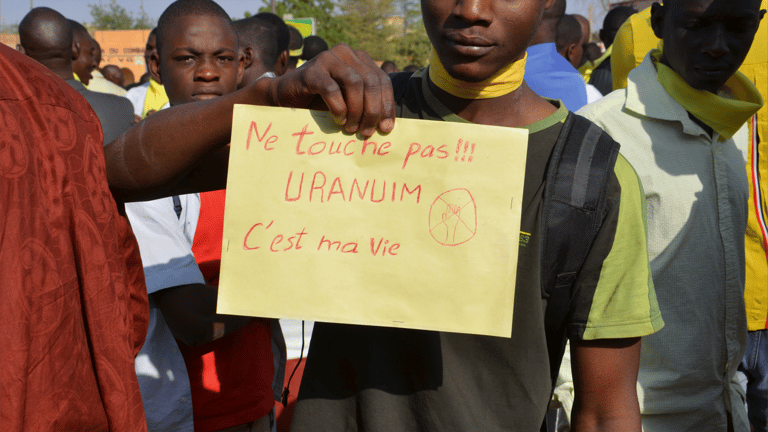 Ne touche pas !!!
URANUIM
C'est ma vie